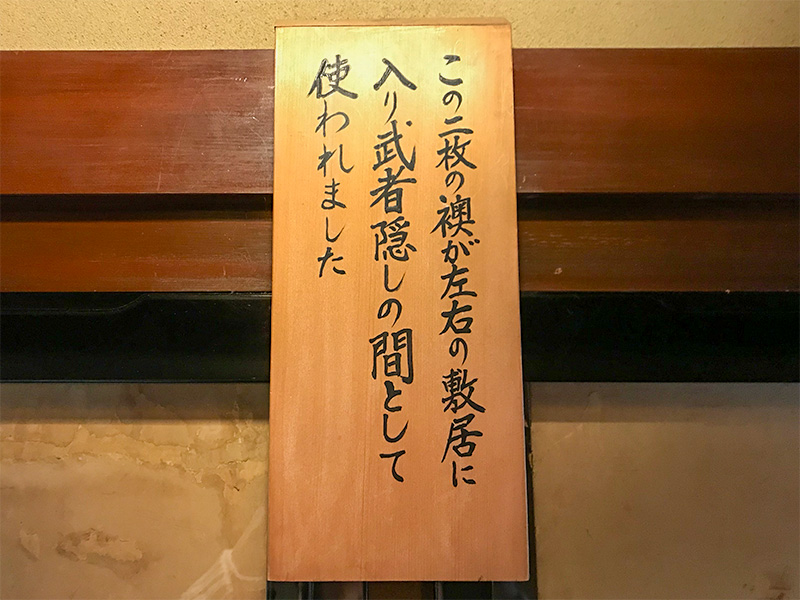 この二枚の襖が左右の敷居に
入り武者隠しの間として
使われました